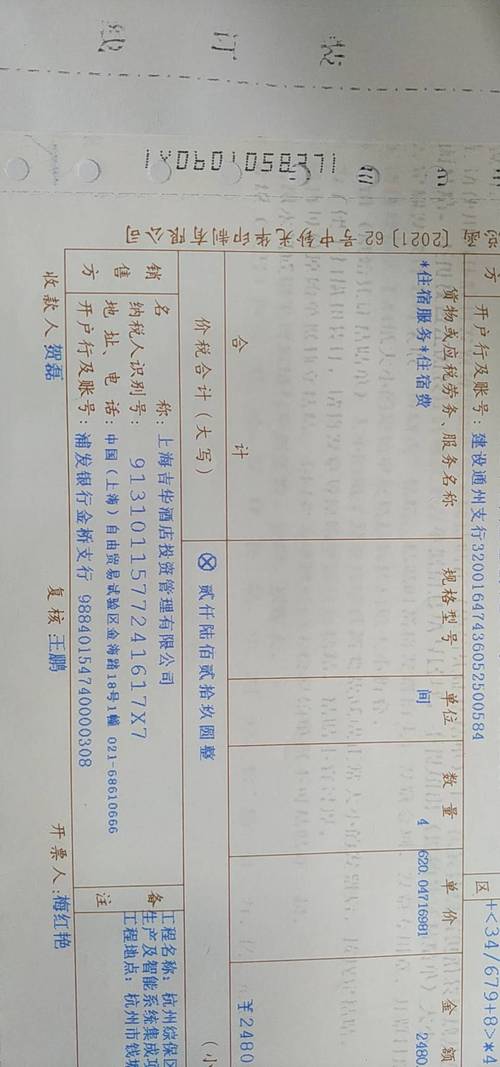 装
订
线
1LCB50105090X1
[2021] 62 号中钞光华印制有限公司
方
开户行及账号：建设通州支行32001647436052500584
区
+<34/679+8>*4
货物或应税劳务、服务名称 规格型号 单位 数量 单价 金额
*住宿服务*住宿费 间 4 620.04716981 2480.
合计 ¥2480
价税合计（大写） ⊗ 贰仟陆佰贰拾玖圆整 （小
销售方
名称：上海吉华酒店投资管理有限公司
纳税人识别号：9131011577241617X7
地址、电话：中国（上海）自由贸易试验区金海路18号1幢 021-68610666
开户行及账号：浦发银行金桥支行 98840154740000308
备注
工程名称：杭州综保区
生产及智能系统集成项
工程地点：杭州市钱塘
收款人 贺磊 复核 王鹏 开票人：梅红艳